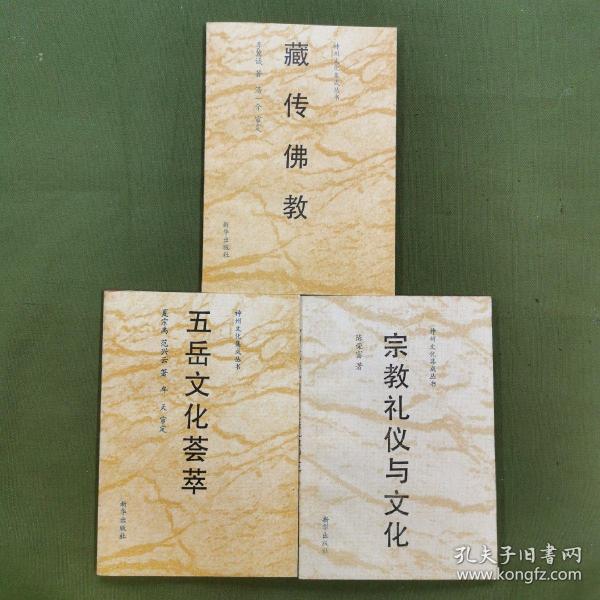 神州文化集成丛书
藏传佛教
李冀诚 著 汤一介 审定
新华出版社
神州文化集成丛书
五岳文化荟萃
夏宗禹 范兴云 著 牟 天 审定
新华出版社
神州文化集成丛书
宗教礼仪与文化
陈荣富 著
新华出版社
孔夫子旧书网
www.kongfz.com